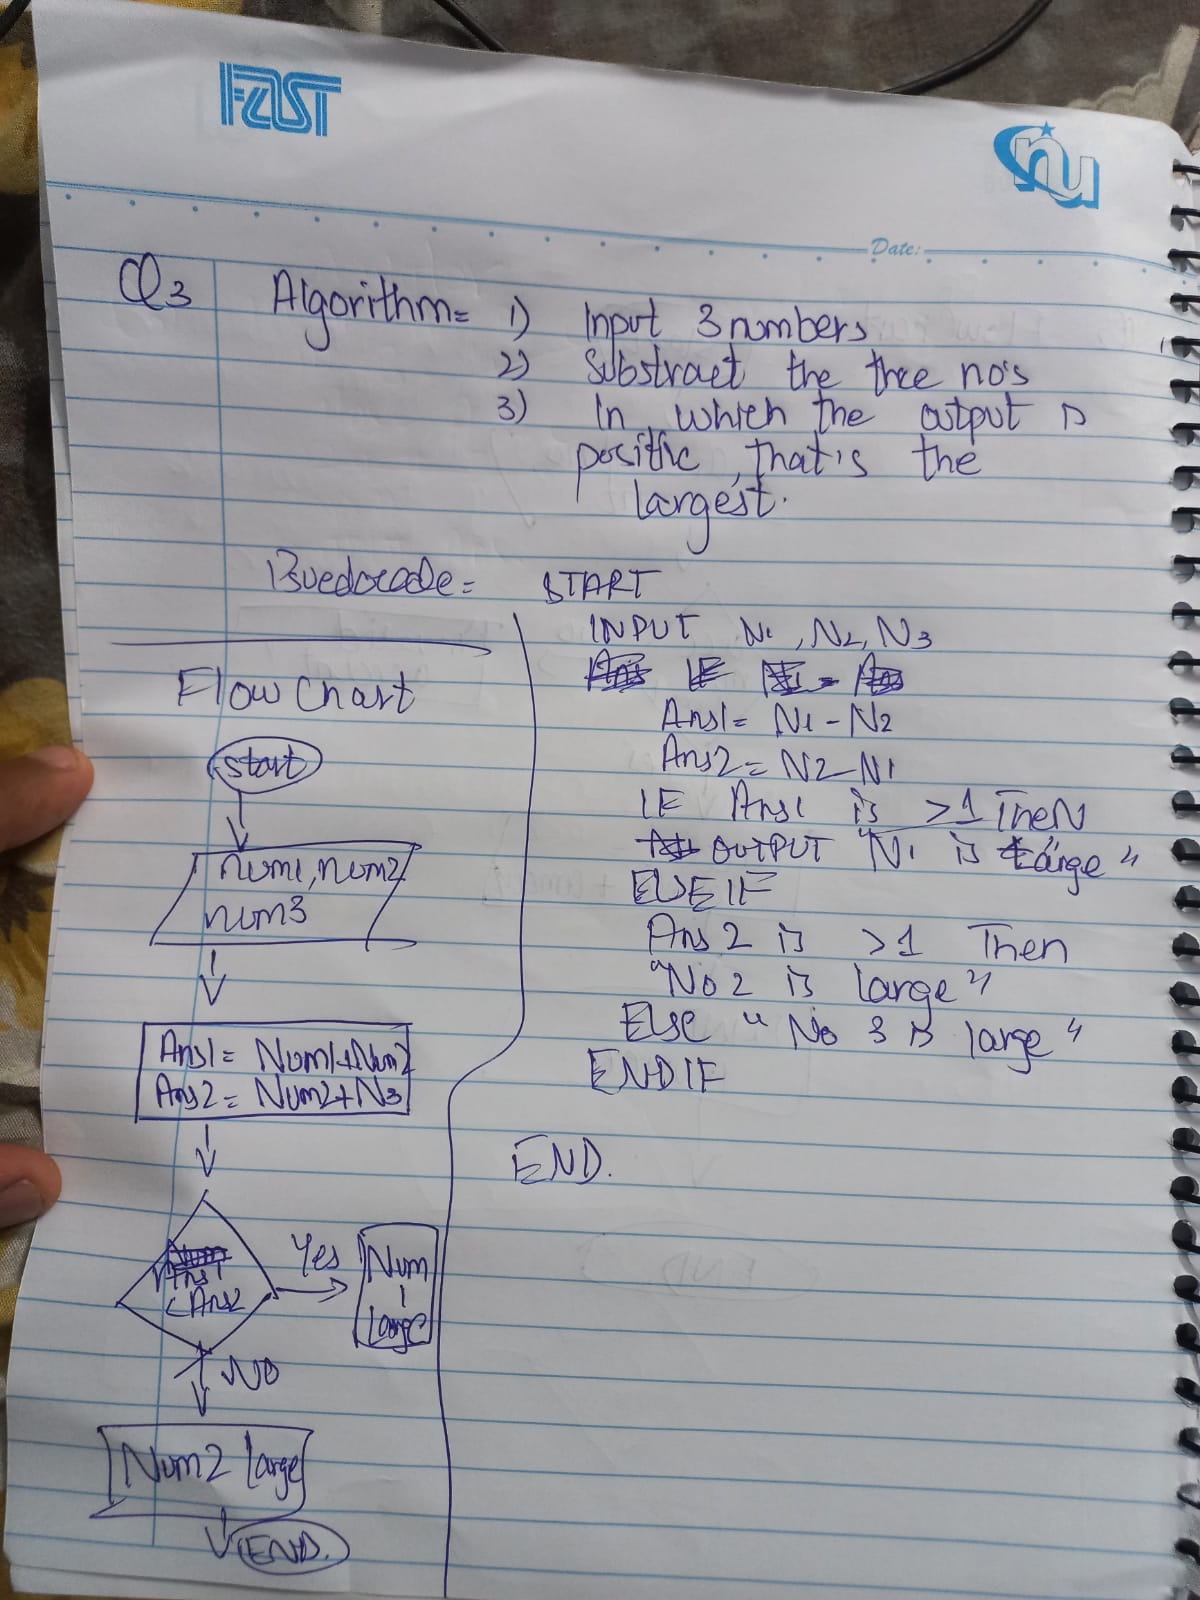 FAST
nu
Date:
Q3 Algorithm= 1) Input 3 numbers
2) Substract the thee no's
3) In which the output is
positic, that's the
largest.
Buedocode= START
INPUT N1, N2, N3
IF
Ans1= N1-N2
Ans2= N2-N1
IF Ans1 is >1 TheN
OUTPUT "N1 is Large"
ELSE IF
Ans 2 is >1 Then
"No 2 is large"
Else "No 3 is large"
ENDIF
END.
Flow Chart
start
num1, num2
num3
Ans1= Num1+Num2
Ans2= Num2+N3
Ans1
<Ans2
Yes
Num
1
large
NO
Num2 large
END.